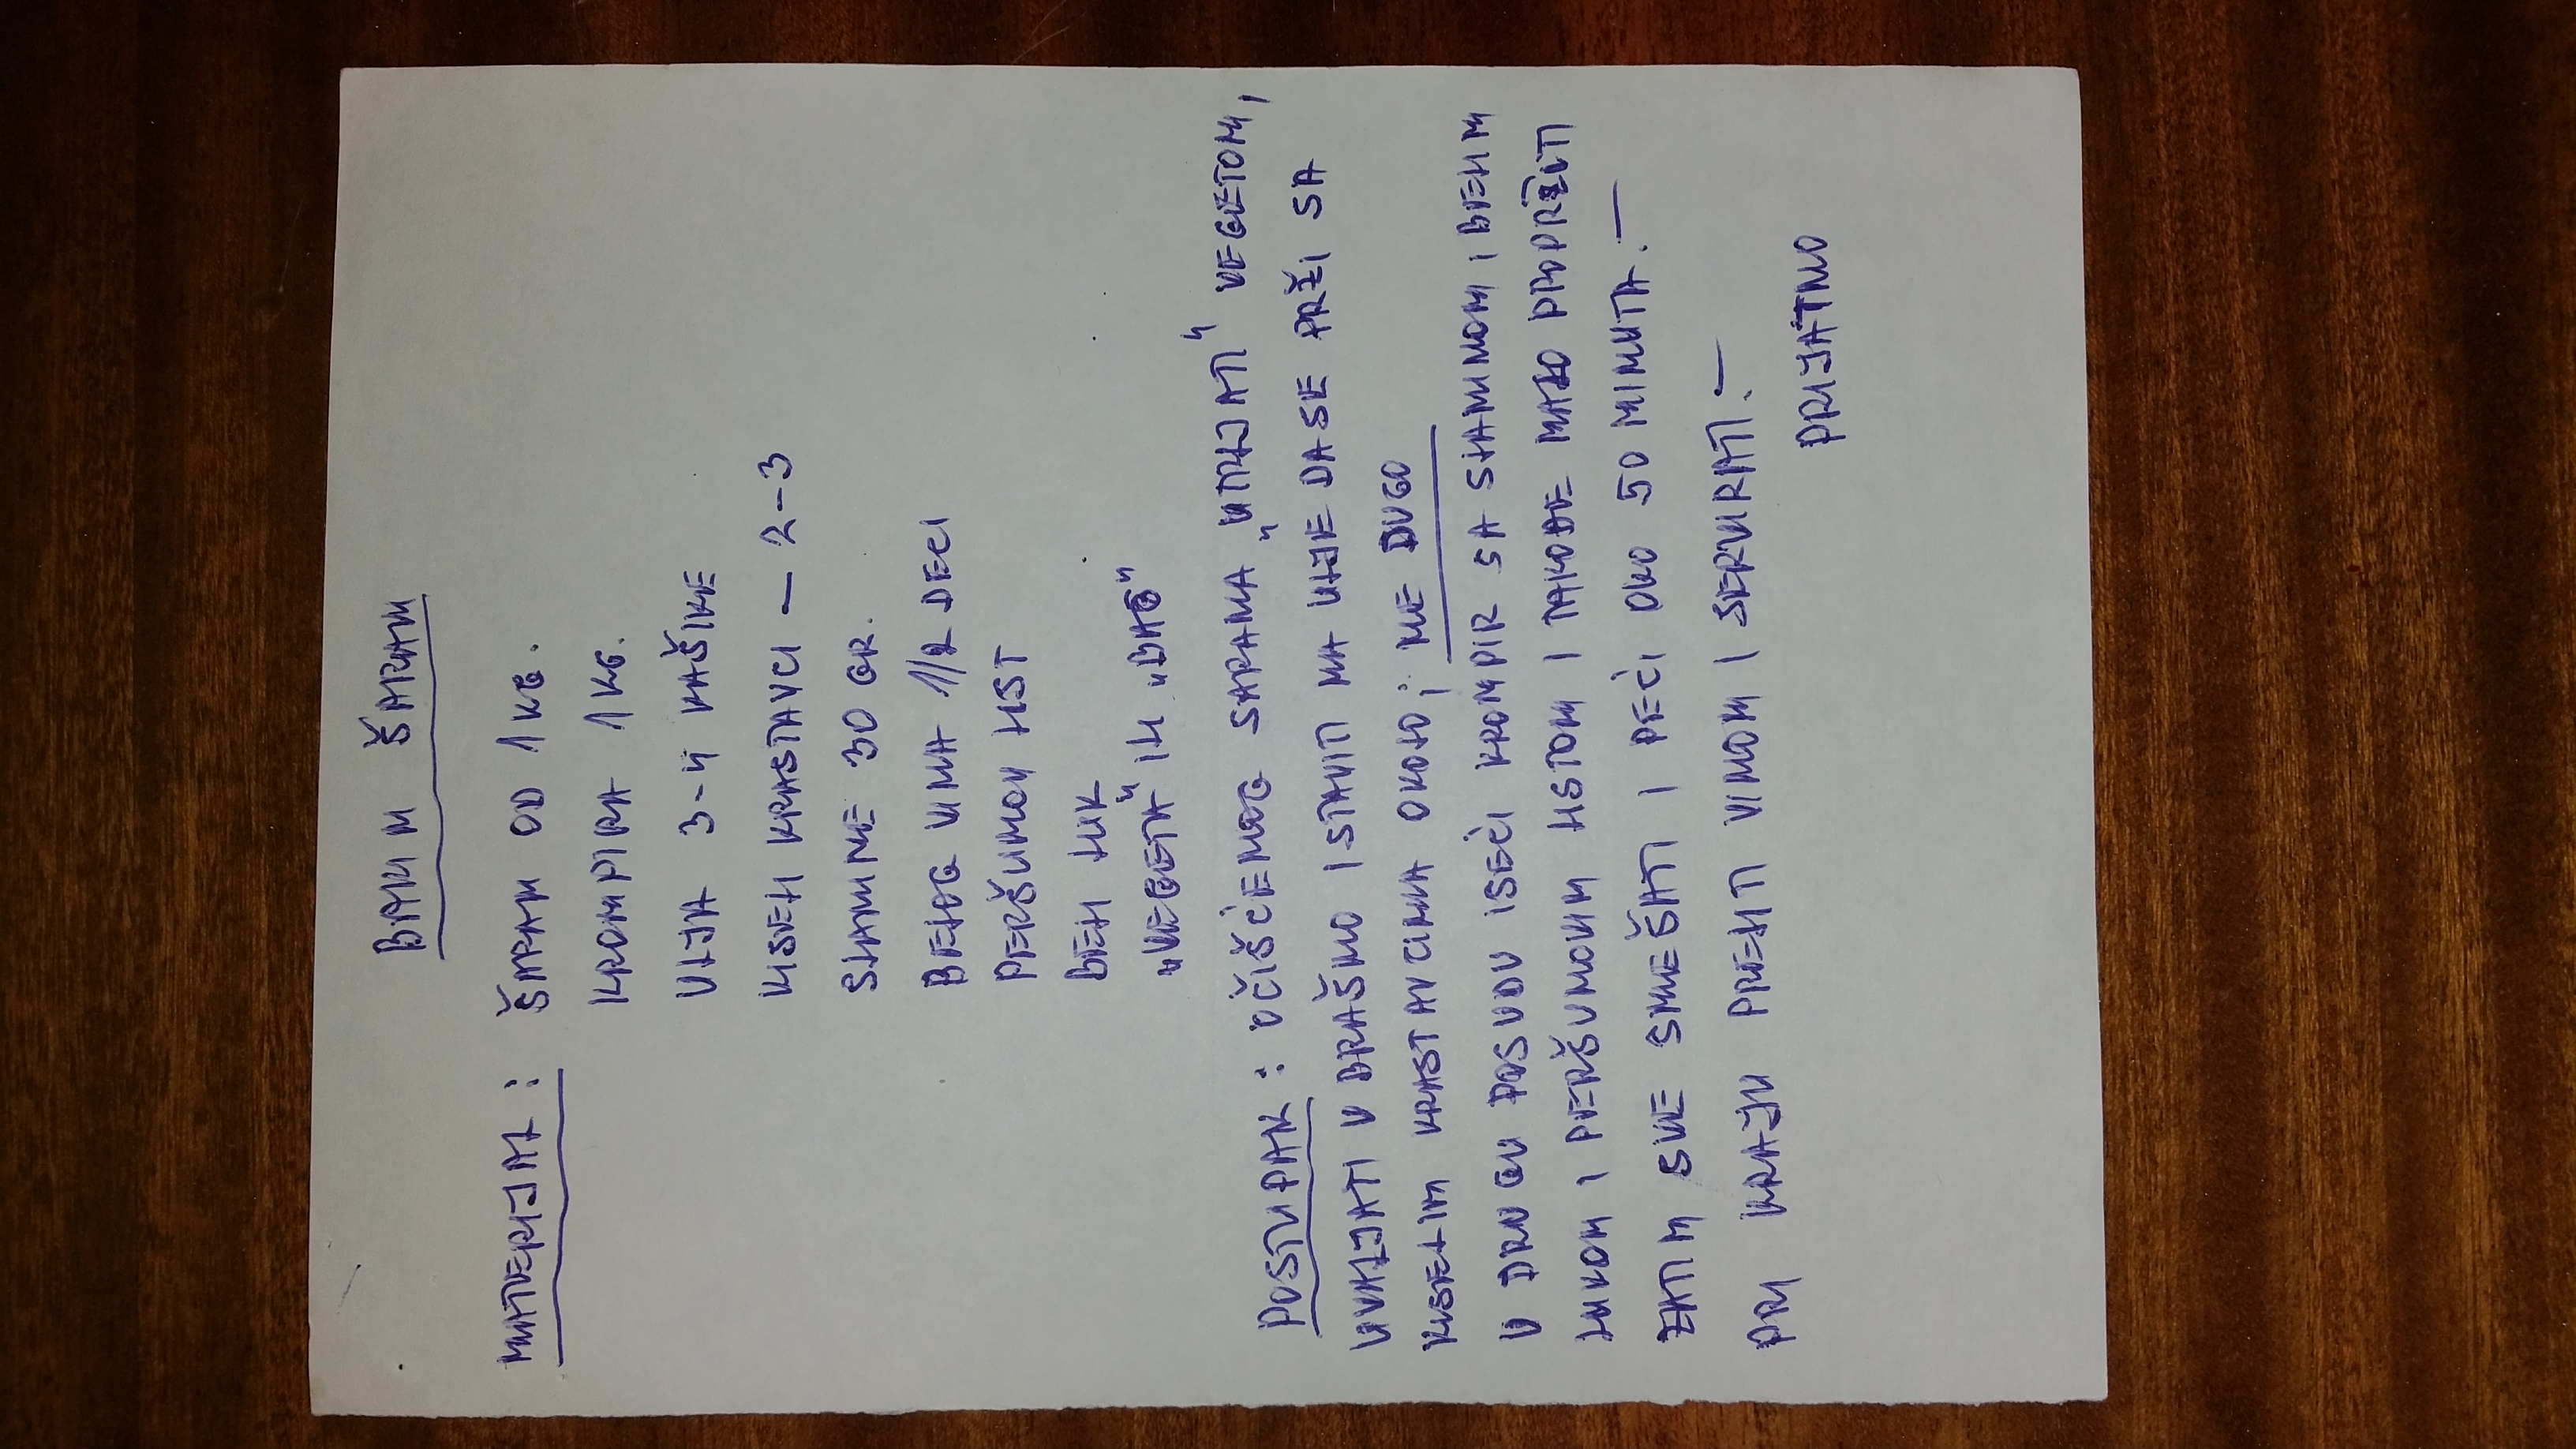 BAKIN ŠARAN
MATERIJAL: ŠARAN OD 1 KG.
KROMPIRA 1 KG.
ULJA 3-4 KAŠIKE
KISELI KRASTAVCI — 2-3
SLANINE 30 GR.
BELOG VINA 1/2 DECI
PERŠUNOV LIST
BELI LUK
„VEGETA" ILI „BAG"
POSTUPAK: OČIŠĆENOG SARANA „UTRLJATI" VEGETOM,
UVALJATI U BRAŠNO I STAVITI NA ULJE DA SE PRŽI SA
KISELIM KRASTAVCIMA OKOLO; NE DUGO
U DRUGU POSUDU ISEĆI KROMPIR SA SLANINOM I BELIM
LUKOM I PERŠUNOVIM LISTOM I TAKOĐE MALO PROPRŽITI
ZATIM SVE SMEŠATI I PEĆI OKO 50 MINUTA.—
PRI KRAJU PRELITI VINOM I SERVIRATI.—
PRIJATNO